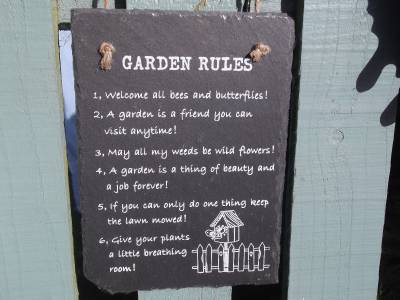 GARDEN RULES
1, Welcome all bees and butterflies!
2, A garden is a friend you can
visit anytime!
3, May all my weeds be wild flowers!
4, A garden is a thing of beauty and
a job forever!
5, If you can only do one thing keep
the lawn mowed!
6, Give your plants
a little breathing
room!